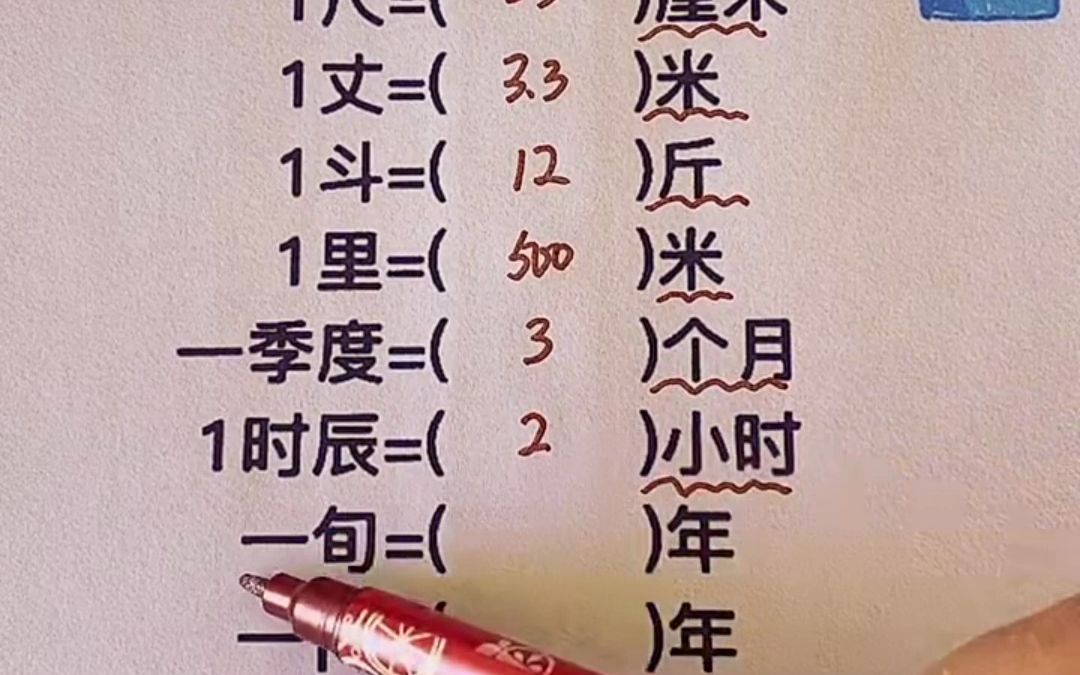 1尺=( )厘米
1丈=( 3.3 )米
1斗=( 12 )斤
1里=( 500 )米
一季度=( 3 )个月
1时辰=( 2 )小时
一旬=( )年
一 ( )年